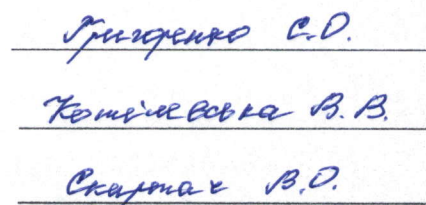 Григоренко С.О.
Котілевська В.В.
Скарпач В.О.